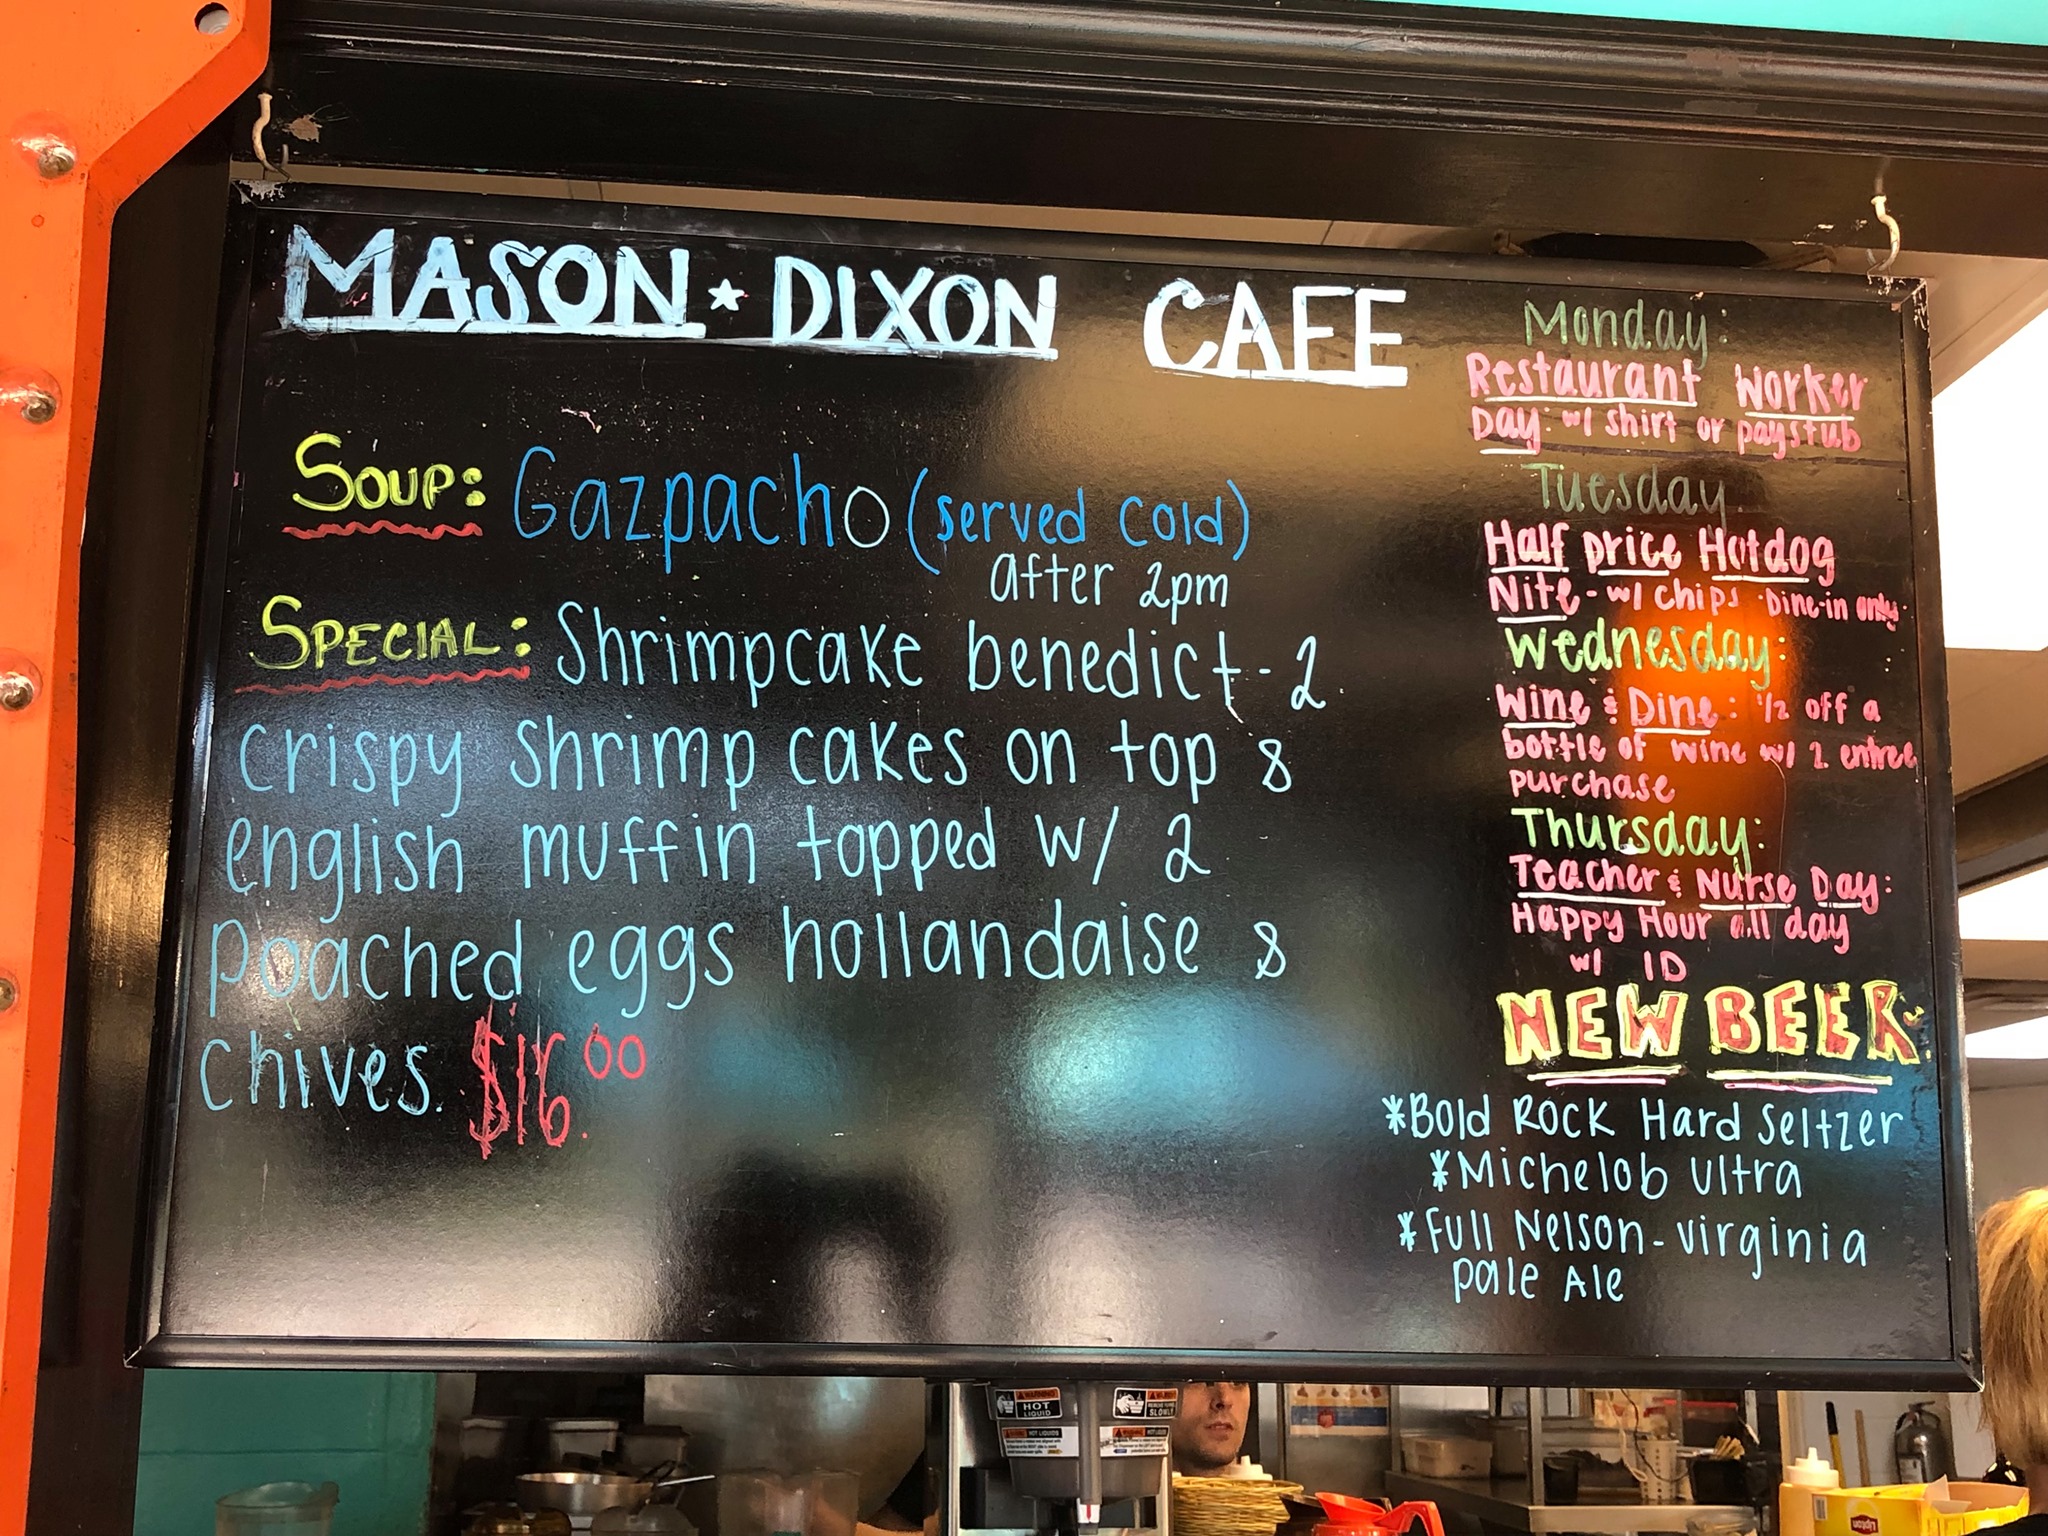 MASON ★ DIXON CAFE
SOUP: Gazpacho (served cold)
after 2pm
SPECIAL: Shrimpcake benedict - 2
crispy shrimp cakes on top &
english muffin topped w/ 2
poached eggs hollandaise &
chives. $16.00
Monday:
Restaurant Worker
Day: w/ shirt or paystub
Tuesday
Half price Hotdog
Nite - w/ chips · Dine-in only·
Wednesday:
Wine & Dine: 1/2 off a
bottle of wine w/ 2 entree
purchase
Thursday:
Teacher & Nurse Day:
Happy Hour all day
w/ ID
NEW BEER
*Bold Rock Hard Seltzer
*Michelob Ultra
*Full Nelson - Virginia
pale Ale
WARNING
HOT
LIQUID
WARNING
REMOVE FUNNEL
SLOWLY
WARNING HOT LIQUIDS
WARNING HOT LIQUIDS
Lipton